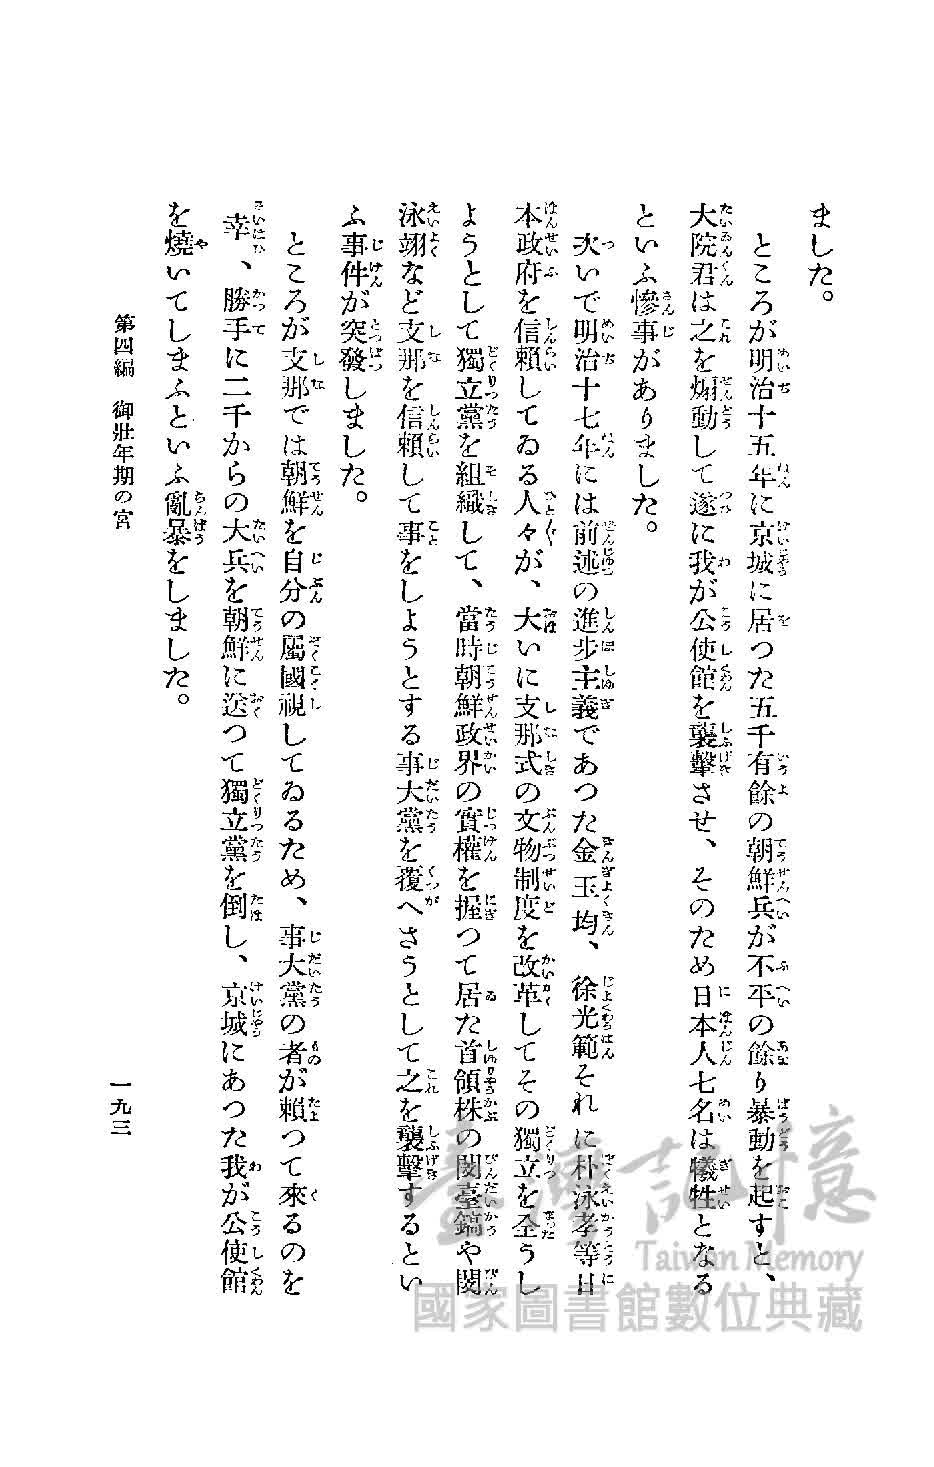 ました。
ところが明治十五年に京城に居つた五千有餘の朝鮮兵が不平の餘り暴動を起すと、
大院君は之を煽動して遂に我が公使館を襲擊させ、そのため日本人七名は犧牲となる
といふ慘事がありました。
次いで明治十七年には前述の進步主義であつた金玉均、徐光範それに朴泳孝等日
本政府を信賴してゐる人々が、大いに支那式の文物制度を改革してその獨立を全うし
ようとして獨立黨を組織して、當時朝鮮政界の實權を握つて居た首領株の閔臺鎬や閔
泳翊など支那を信賴して事をしようとする事大黨を覆へさうとして之を襲擊するとい
ふ事件が突發しました。
ところが支那では朝鮮を自分の屬國視してゐるため、事大黨の者が賴つて來るのを
幸、勝手に二千からの大兵を朝鮮に送つて獨立黨を倒し、京城にあつた我が公使館
を燒いてしまふといふ亂暴をしました。
第四編 御壯年期の宮
一九三
臺灣記憶
Taiwan Memory
國家圖書館數位典藏